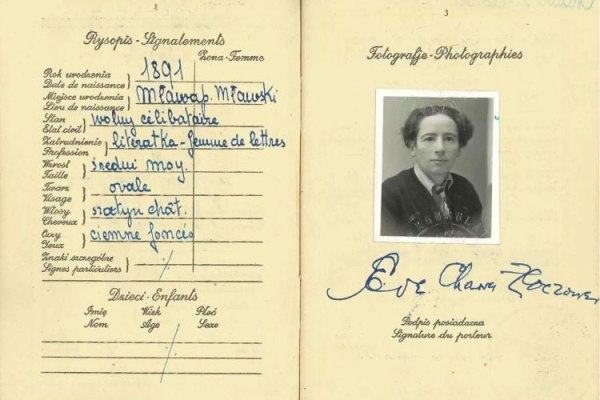 2
Rysopis - Signalements
Żona - Femme
Rok urodzenia
Date de naissance
1891
Miejsce urodzenia
Lieu de naissance
Mława p. Mławski
Stan
Etat civil
wolny célibataire
Zatrudnienie
Profession
literatka - femme de lettres
Wzrost
Taille
średni moy.
Twarz
Visage
ovale
Włosy
Cheveux
szatyn chât.
Oczy
Yeux
ciemne foncés
Znaki szczególne
Signes particuliers
Dzieci - Enfants
Imię Wiek Płeć
Nom Age Sexe
3
Fotografje - Photographies
KONSUL
Chawa
Podpis posiadacza
Signature du porteur